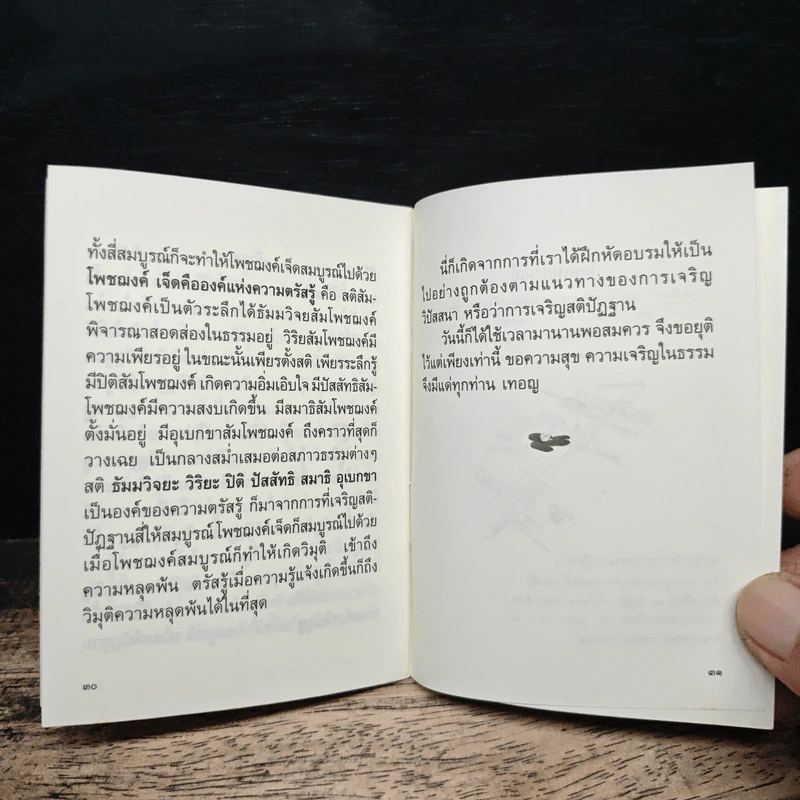 ทั้งสี่สมบูรณ์ก็จะทำให้โพชฌงค์เจ็ดสมบูรณ์ไปด้วย
โพชฌงค์ เจ็ดคือองค์แห่งความตรัสรู้ คือ สติสัม-
โพชฌงค์เป็นตัวระลึกได้ธัมมวิจยสัมโพชฌงค์
พิจารณาสอดส่องในธรรมอยู่ วิริยสัมโพชฌงค์มี
ความเพียรอยู่ ในขณะนั้นเพียรตั้งสติ เพียรระลึกรู้
มีปิติสัมโพชฌงค์ เกิดความอิ่มเอิบใจ มีปัสสัทธิสัม-
โพชฌงค์มีความสงบเกิดขึ้น มีสมาธิสัมโพชฌงค์
ตั้งมั่นอยู่ มีอุเบกขาสัมโพชฌงค์ ถึงคราวที่สุดก็
วางเฉย เป็นกลางสม่ำเสมอต่อสภาวธรรมต่างๆ
สติ ธัมมวิจยะ วิริยะ ปิติ ปัสสัทธิ สมาธิ อุเบกขา
เป็นองค์ของความตรัสรู้ ก็มาจากการที่เจริญสติ-
ปัฏฐานสี่ให้สมบูรณ์ โพชฌงค์เจ็ดก็สมบูรณ์ไปด้วย
เมื่อโพชฌงค์สมบูรณ์ก็ทำให้เกิดวิมุติ เข้าถึง
ความหลุดพ้น ตรัสรู้เมื่อความรู้แจ้งเกิดขึ้นก็ถึง
วิมุติความหลุดพ้นได้ในที่สุด
๓๐
นี่ก็เกิดจากการที่เราได้ฝึกหัดอบรมให้เป็น
ไปอย่างถูกต้องตามแนวทางของการเจริญ
วิปัสสนา หรือว่าการเจริญสติปัฏฐาน
วันนี้ก็ได้ใช้เวลามานานพอสมควร จึงขอยุติ
ไว้แต่เพียงเท่านี้ ขอความสุข ความเจริญในธรรม
จึงมีแด่ทุกท่าน เทอญ
๓๑